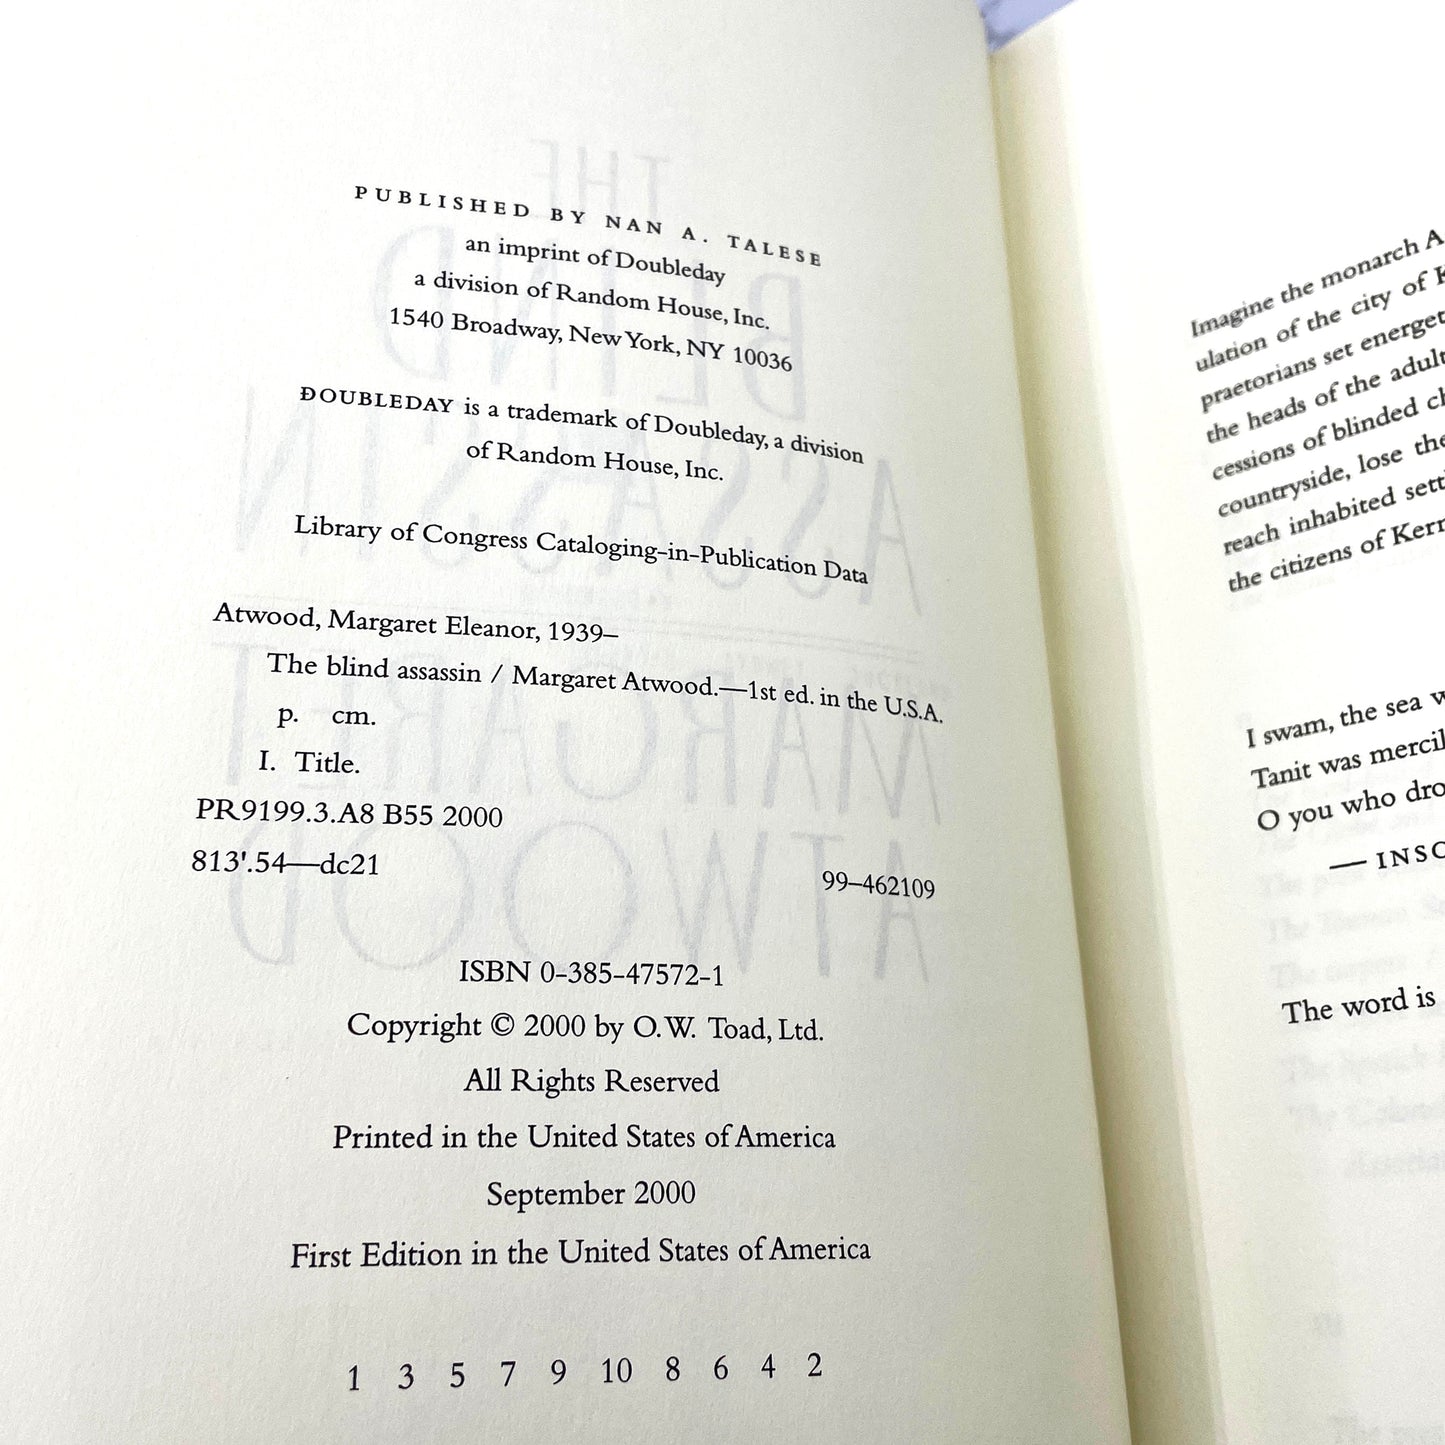 PUBLISHED BY NAN A. TALESE
an imprint of Doubleday
a division of Random House, Inc.
1540 Broadway, New York, NY 10036
DOUBLEDAY is a trademark of Doubleday, a division
of Random House, Inc.
Library of Congress Cataloging-in-Publication Data
Atwood, Margaret Eleanor, 1939–
The blind assassin / Margaret Atwood.—1st ed. in the U.S.A.
p. cm.
I. Title.
PR9199.3.A8 B55 2000
813'.54—dc21
99–462109
ISBN 0-385-47572-1
Copyright © 2000 by O.W. Toad, Ltd.
All Rights Reserved
Printed in the United States of America
September 2000
First Edition in the United States of America
1 3 5 7 9 10 8 6 4 2
Imagine the monarch A
ulation of the city of K
praetorians set energet
the heads of the adult
cessions of blinded ch
countryside, lose the
reach inhabited setti
the citizens of Kerr
I swam, the sea w
Tanit was mercil
O you who dro
— INSC
The word is